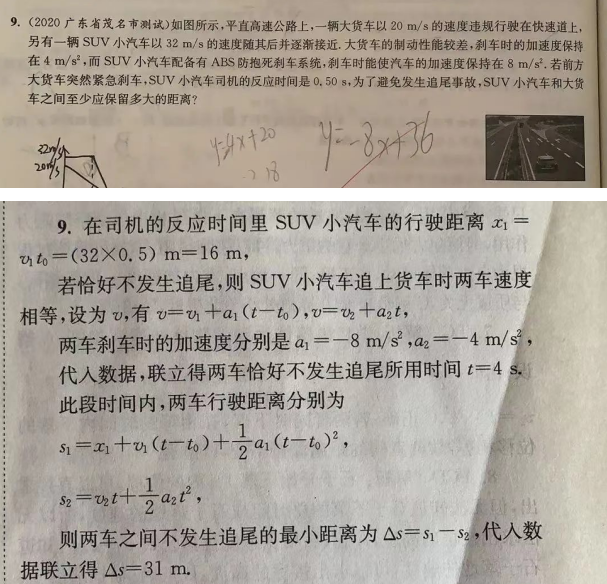 9. (2020 广东省茂名市测试)如图所示,平直高速公路上,一辆大货车以 20 m/s 的速度违规行驶在快速道上,
另有一辆 SUV 小汽车以 32 m/s 的速度随其后并逐渐接近.大货车的制动性能较差,刹车时的加速度保持
在 4 m/s²,而 SUV 小汽车配备有 ABS 防抱死刹车系统,刹车时能使汽车的加速度保持在 8 m/s².若前方
大货车突然紧急刹车,SUV 小汽车司机的反应时间是 0.50 s,为了避免发生追尾事故,SUV 小汽车和大货
车之间至少应保留多大的距离?
y=-8x+36
20m/s
9. 在司机的反应时间里 SUV 小汽车的行驶距离 x₁=
v₁t₀=(32×0.5) m=16 m,
若恰好不发生追尾,则 SUV 小汽车追上货车时两车速度
相等,设为 v,有 v=v₁+a₁(t-t₀),v=v₂+a₂t,
两车刹车时的加速度分别是 a₁=-8 m/s²,a₂=-4 m/s²,
代入数据,联立得两车恰好不发生追尾所用时间 t=4 s.
此段时间内,两车行驶距离分别为
s₁=x₁+v₁(t-t₀)+1/2a₁(t-t₀)²,
s₂=v₂t+1/2a₂t²,
则两车之间不发生追尾的最小距离为 Δs=s₁-s₂,代入数
据联立得 Δs=31 m.